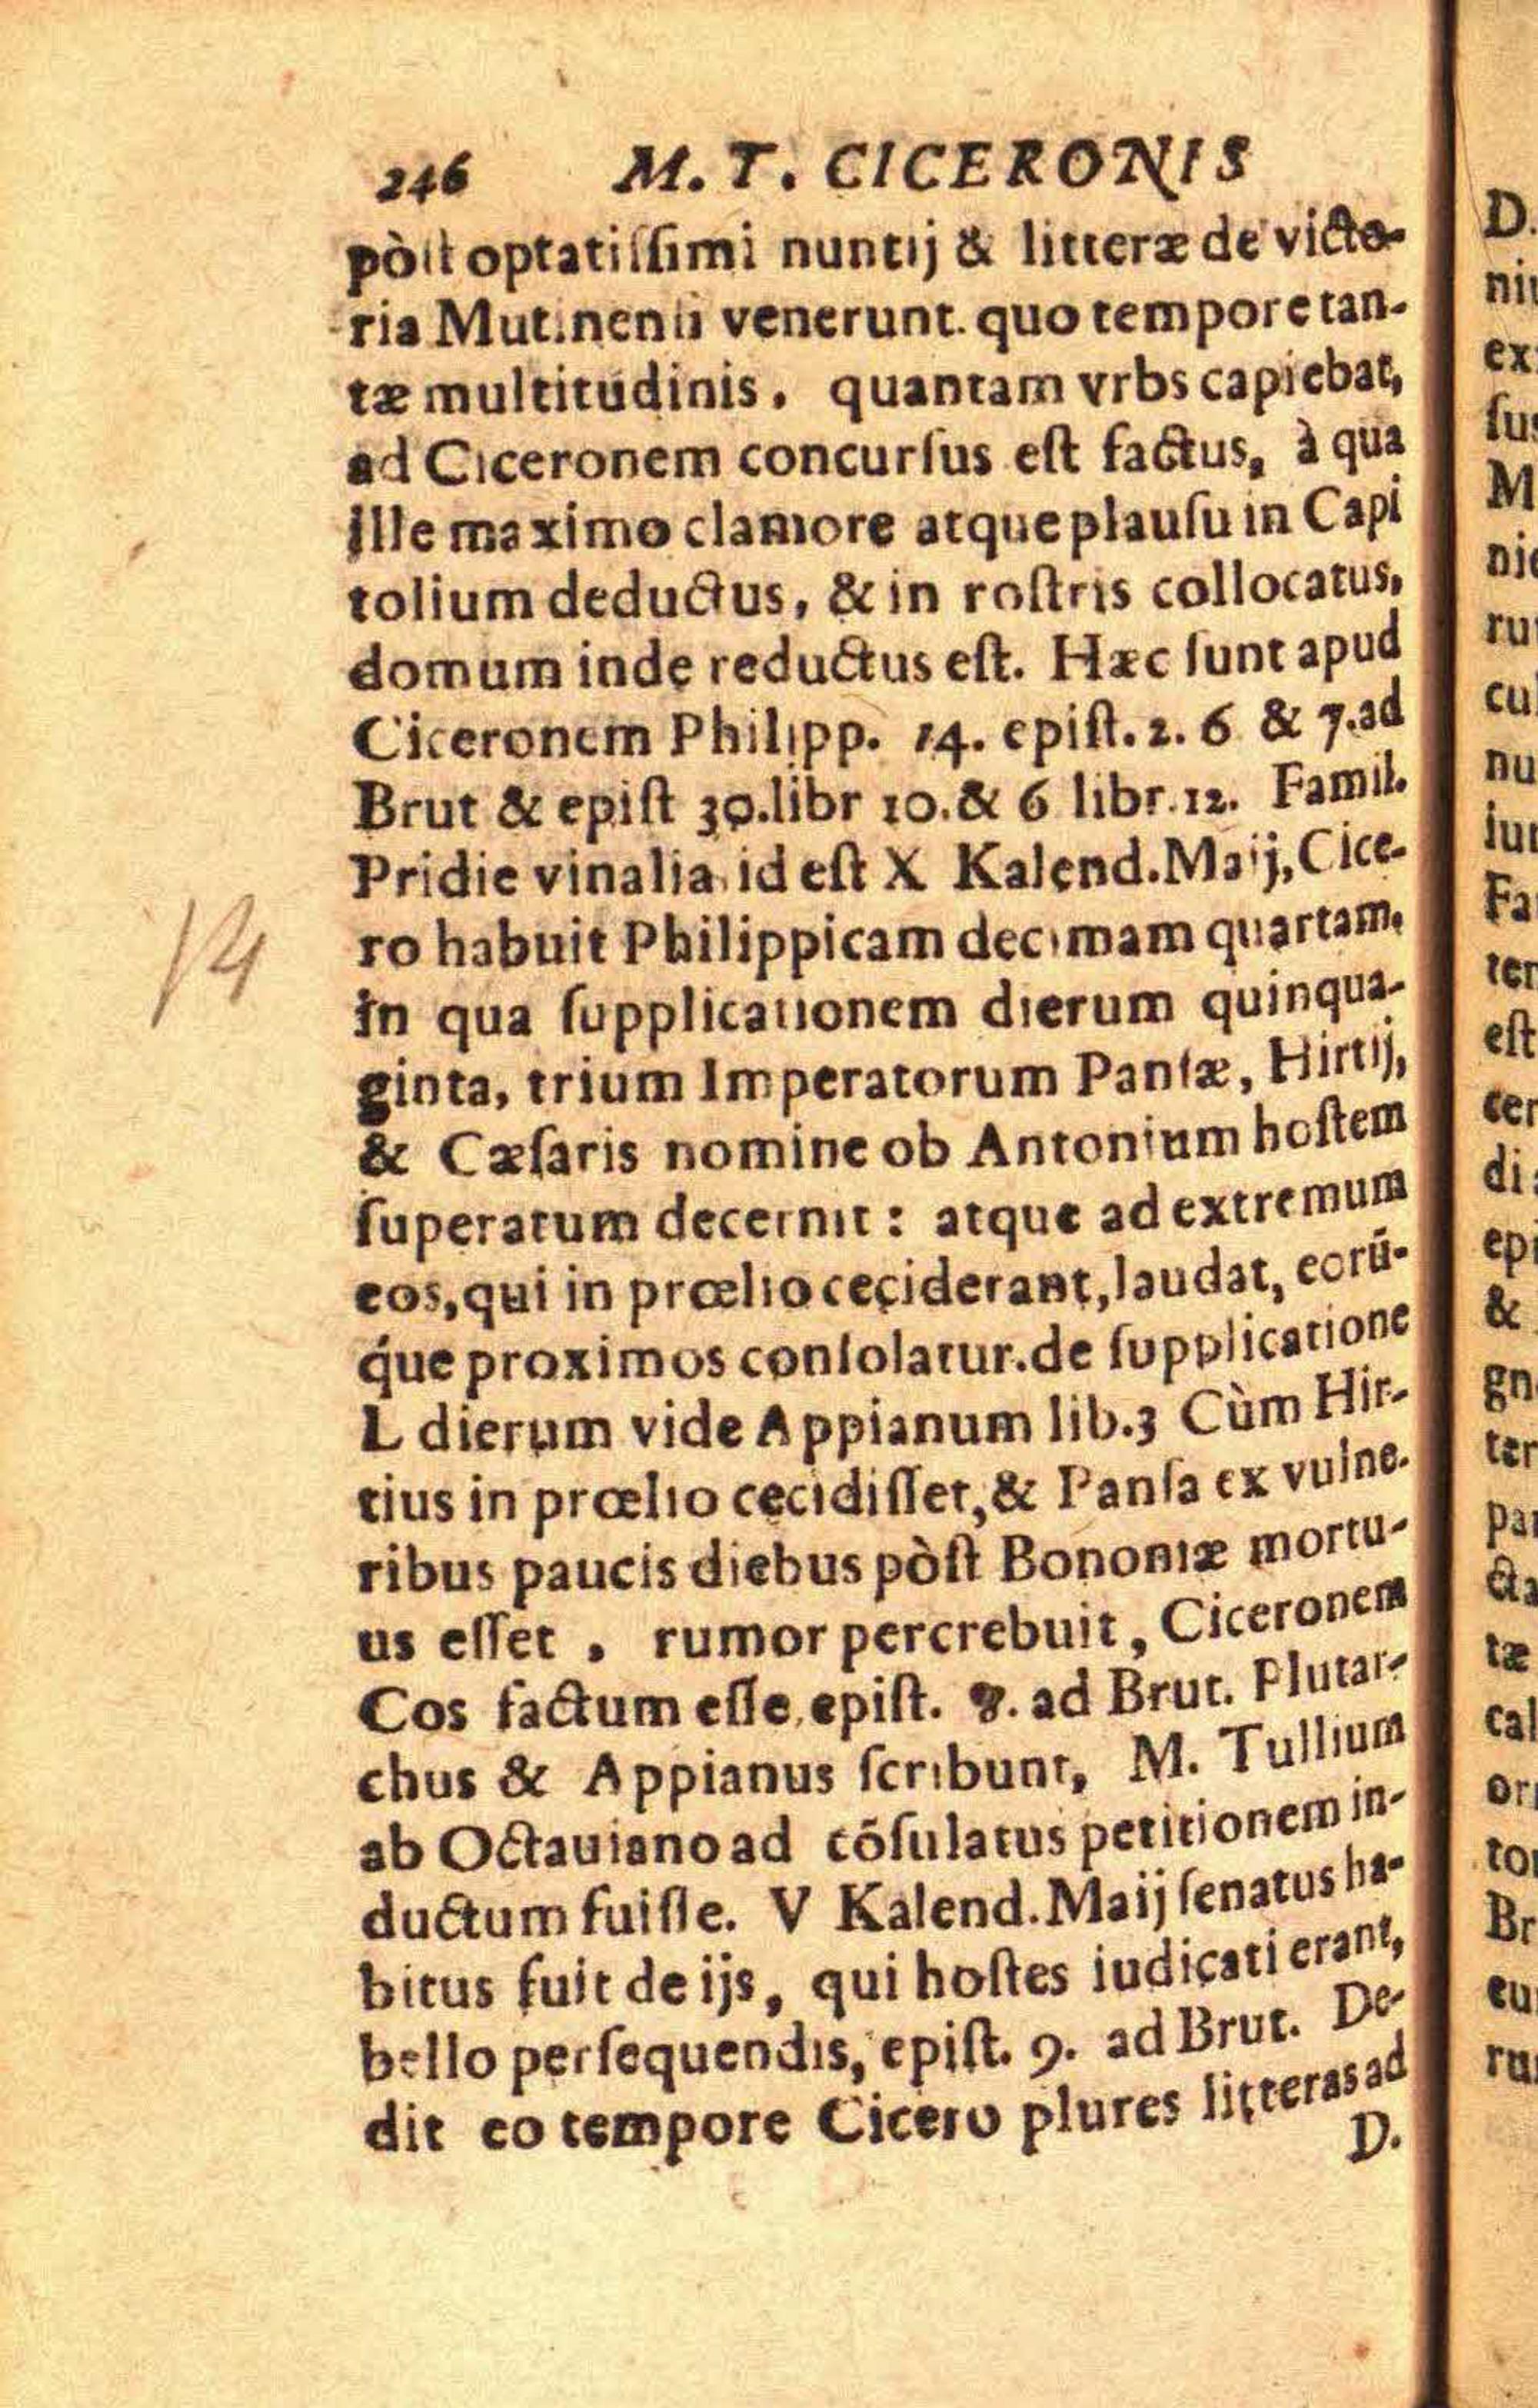 246 M. T. CICERONIS
pòſt optatiſſimi nuntij & litteræ de victo-
ria Mutinenſi venerunt. quo tempore tan-
tæ multitudinis, quantam vrbs capiebat,
ad Ciceronem concurſus eſt factus, à qua
ille maximo clamore atque plauſu in Capi
tolium deductus, & in roſtris collocatus,
domum inde reductus eſt. Hæc ſunt apud
Ciceronem Philipp. 14. epiſt. 2. 6 & 7. ad
Brut & epiſt 30. libr 10. & 6 libr. 12. Famil.
Pridie vinalia, id eſt X Kalend. Maij, Cice-
ro habuit Philippicam decimam quartam.
in qua ſupplicationem dierum quinqua-
ginta, trium Imperatorum Panſæ, Hirtij,
& Cæſaris nomine ob Antonium hoſtem
ſuperatum decernit: atque ad extremum
eos, qui in prœlio ceciderant, laudat, eorū-
q́ue proximos conſolatur. de ſupplicatione
L dierum vide Appianum lib. 3 Cùm Hir-
tius in prœlio cecidiſſet, & Panſa ex vulne-
ribus paucis diebus pòſt Bononiæ mortu-
us eſſet, rumor percrebuit, Ciceronem
Cos factum eſſe, epiſt. 8. ad Brut. Plutar-
chus & Appianus ſcribunt, M. Tullium
ab Octauiano ad cōſulatus petitionem in-
ductum fuiſſe. V Kalend. Maij ſenatus ha-
bitus fuit de ijs, qui hoſtes iudicati erant,
bello perſequendis, epiſt. 9. ad Brut. De-
dit eo tempore Cicero plures litteras ad
D.
14
D.
nii
ex
ſu
M
nie
ru
cu
nu
iu
Fa
ter
eſt
cer
di
ep
&
gn
ter
pa
cta
tæ
cal
or
to
Br
eu
ru